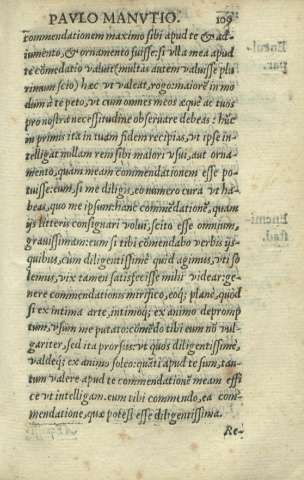 PAVLO MANVTIO. 109
commendationem maximo sibi apud te & ad-
iumento, & ornamento fuisse: si vlla mea apud
te cōmēdatio valuit (multas autem valuisse plu
rimum scio) hæc vt valeat, rogo: maiorē in mo
dum à te peto, vt cum omnes meos æque ac tuos
pro nostra necessitudine obseruare debeas: hūc
in primis ita in tuam fidem recipias, vt ipse in-
telligat nullam rem sibi maiori vsui, aut orna-
mento, quàm meam commendationem esse po-
tuisse: eum, si me diligis, eo numero cura vt ha-
beas, quo me ipsum: hanc commēdationē, quam
ijs litteris consignari volui, scito esse omnium,
grauissimam: eum si tibi cōmendabo verbis ijs-
quibus, cum diligentissimè quid agimus, vti so
lemus, vix tamen satisfecisse mihi videar: ge-
nere commendationis mirifico, eoq́; planè, quòd
si ex intima arte, intimoq́; ex animo deprom-
ptum, vsum me putato: cōmēdo tibi eum nō vul-
gariter, sed ita prorsus: vt quos diligentissimè,
valdeq́; ex animo soleo: quāti apud te sum, tan-
tum valere apud te commendationē meam effi
ce vt intelligam. eum tibi commendo, ea com-
mendatione, quæ potest esse diligentissima.
Re-